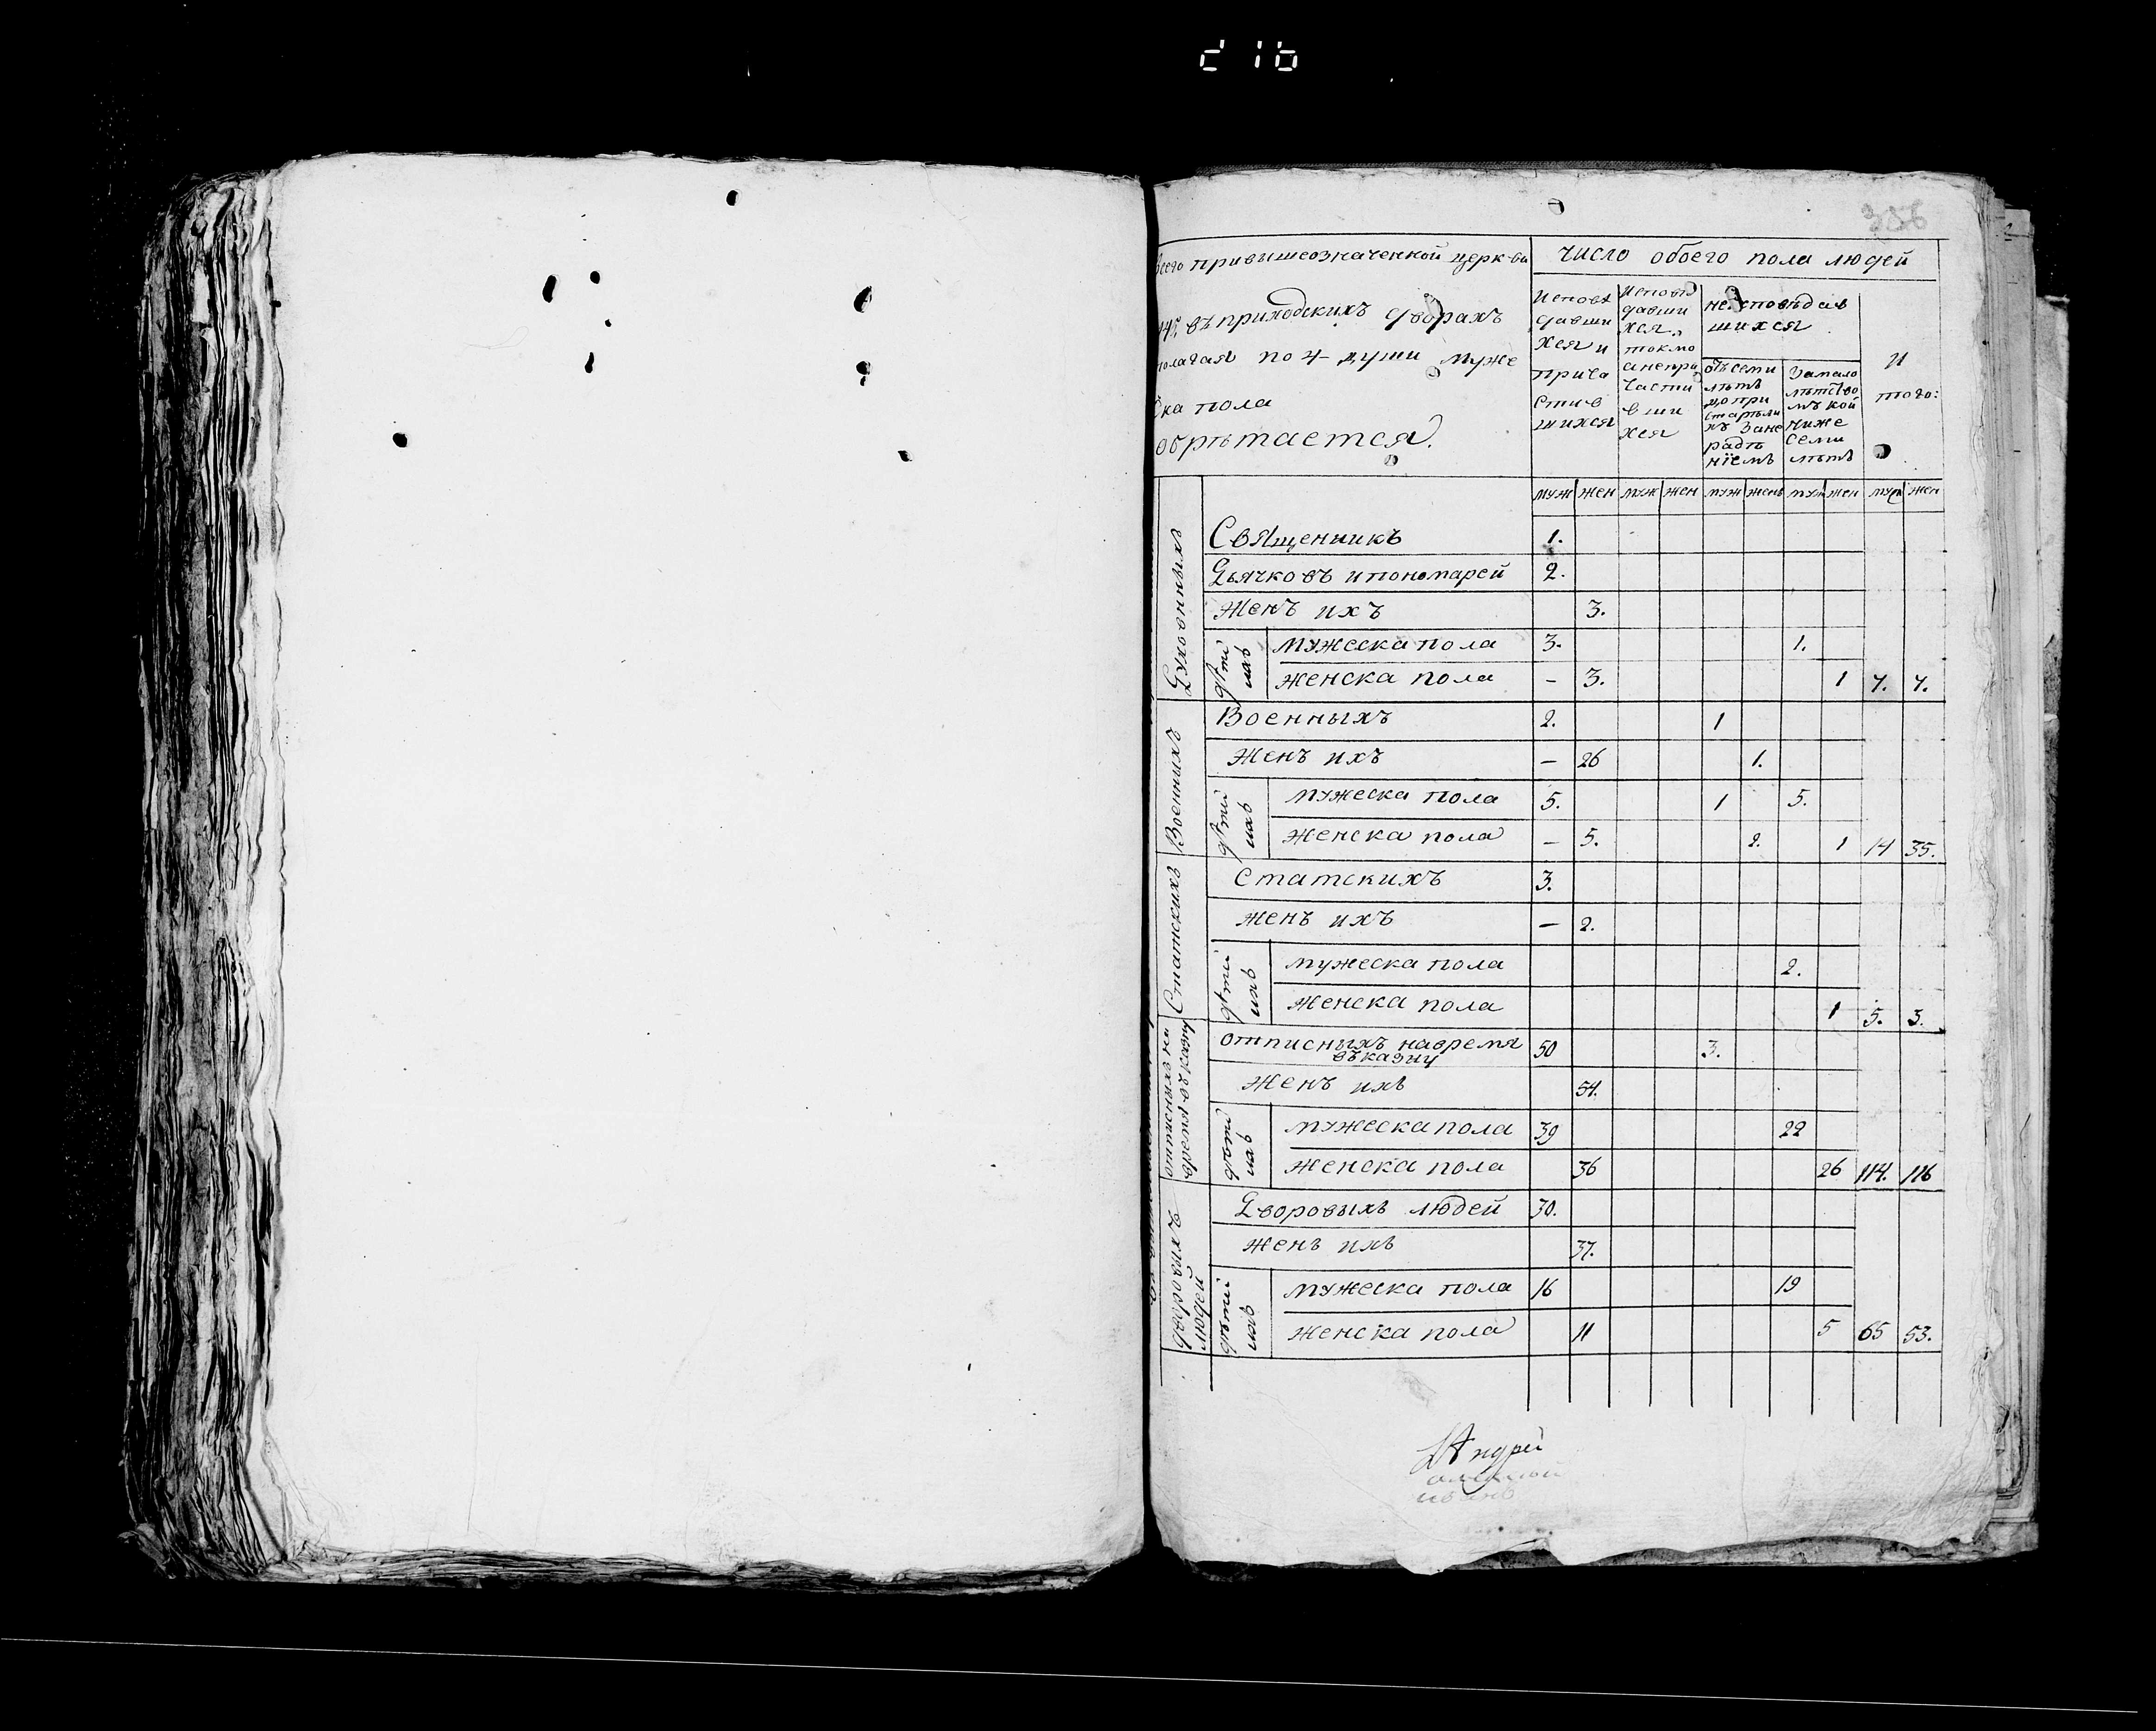 216
356
всего привышеозначенной церкви
въ приходскихъ дворахъ
полагая по 4 души муже
ска пола
обрѣтается.
число обоего пола людей
исповѣ
давши
хся и
прича
стив
шихся
исповѣ
давши
хся
токмо
а непри
части
вши
хся
неисповѣдав
шихся
отъ семи
лѣтъ
до при
старѣлы
хъ за не
радѣ
нїемъ
за мало
лѣтство
мъ кой
ниже
семи
лѣтъ
и
того:
муж жен муж жен муж женъ муж жен муж жен
Духовныхъ
Священникъ 1.
Дьячковъ и пономарей 2.
Женъ ихъ 3.
дѣтей ихъ
мужеска пола 3. 1.
женска пола – 3. 1 7. 7.
Военныхъ
Военныхъ 2. 1
Женъ ихъ – 26 1.
дѣтей ихъ
мужеска пола 5. 1 5.
женска пола – 5. 2. 1 14 35.
Статскихъ
Статскихъ 3.
женъ ихъ – 2.
дѣтей ихъ
мужеска пола 2.
женска пола 1 5. 3.
отписныхъ на
время въ казну
отписныхъ на время
въ казну 50 3.
Женъ ихъ 54.
дѣтей ихъ
мужеска пола 39 22
женска пола 36 26 114. 116
дворовыхъ
людей
Дворовыхъ людей 30.
женъ ихъ 37.
дѣтей ихъ
мужеска пола 16 19
женска пола 11 5 65 53.
Андрей